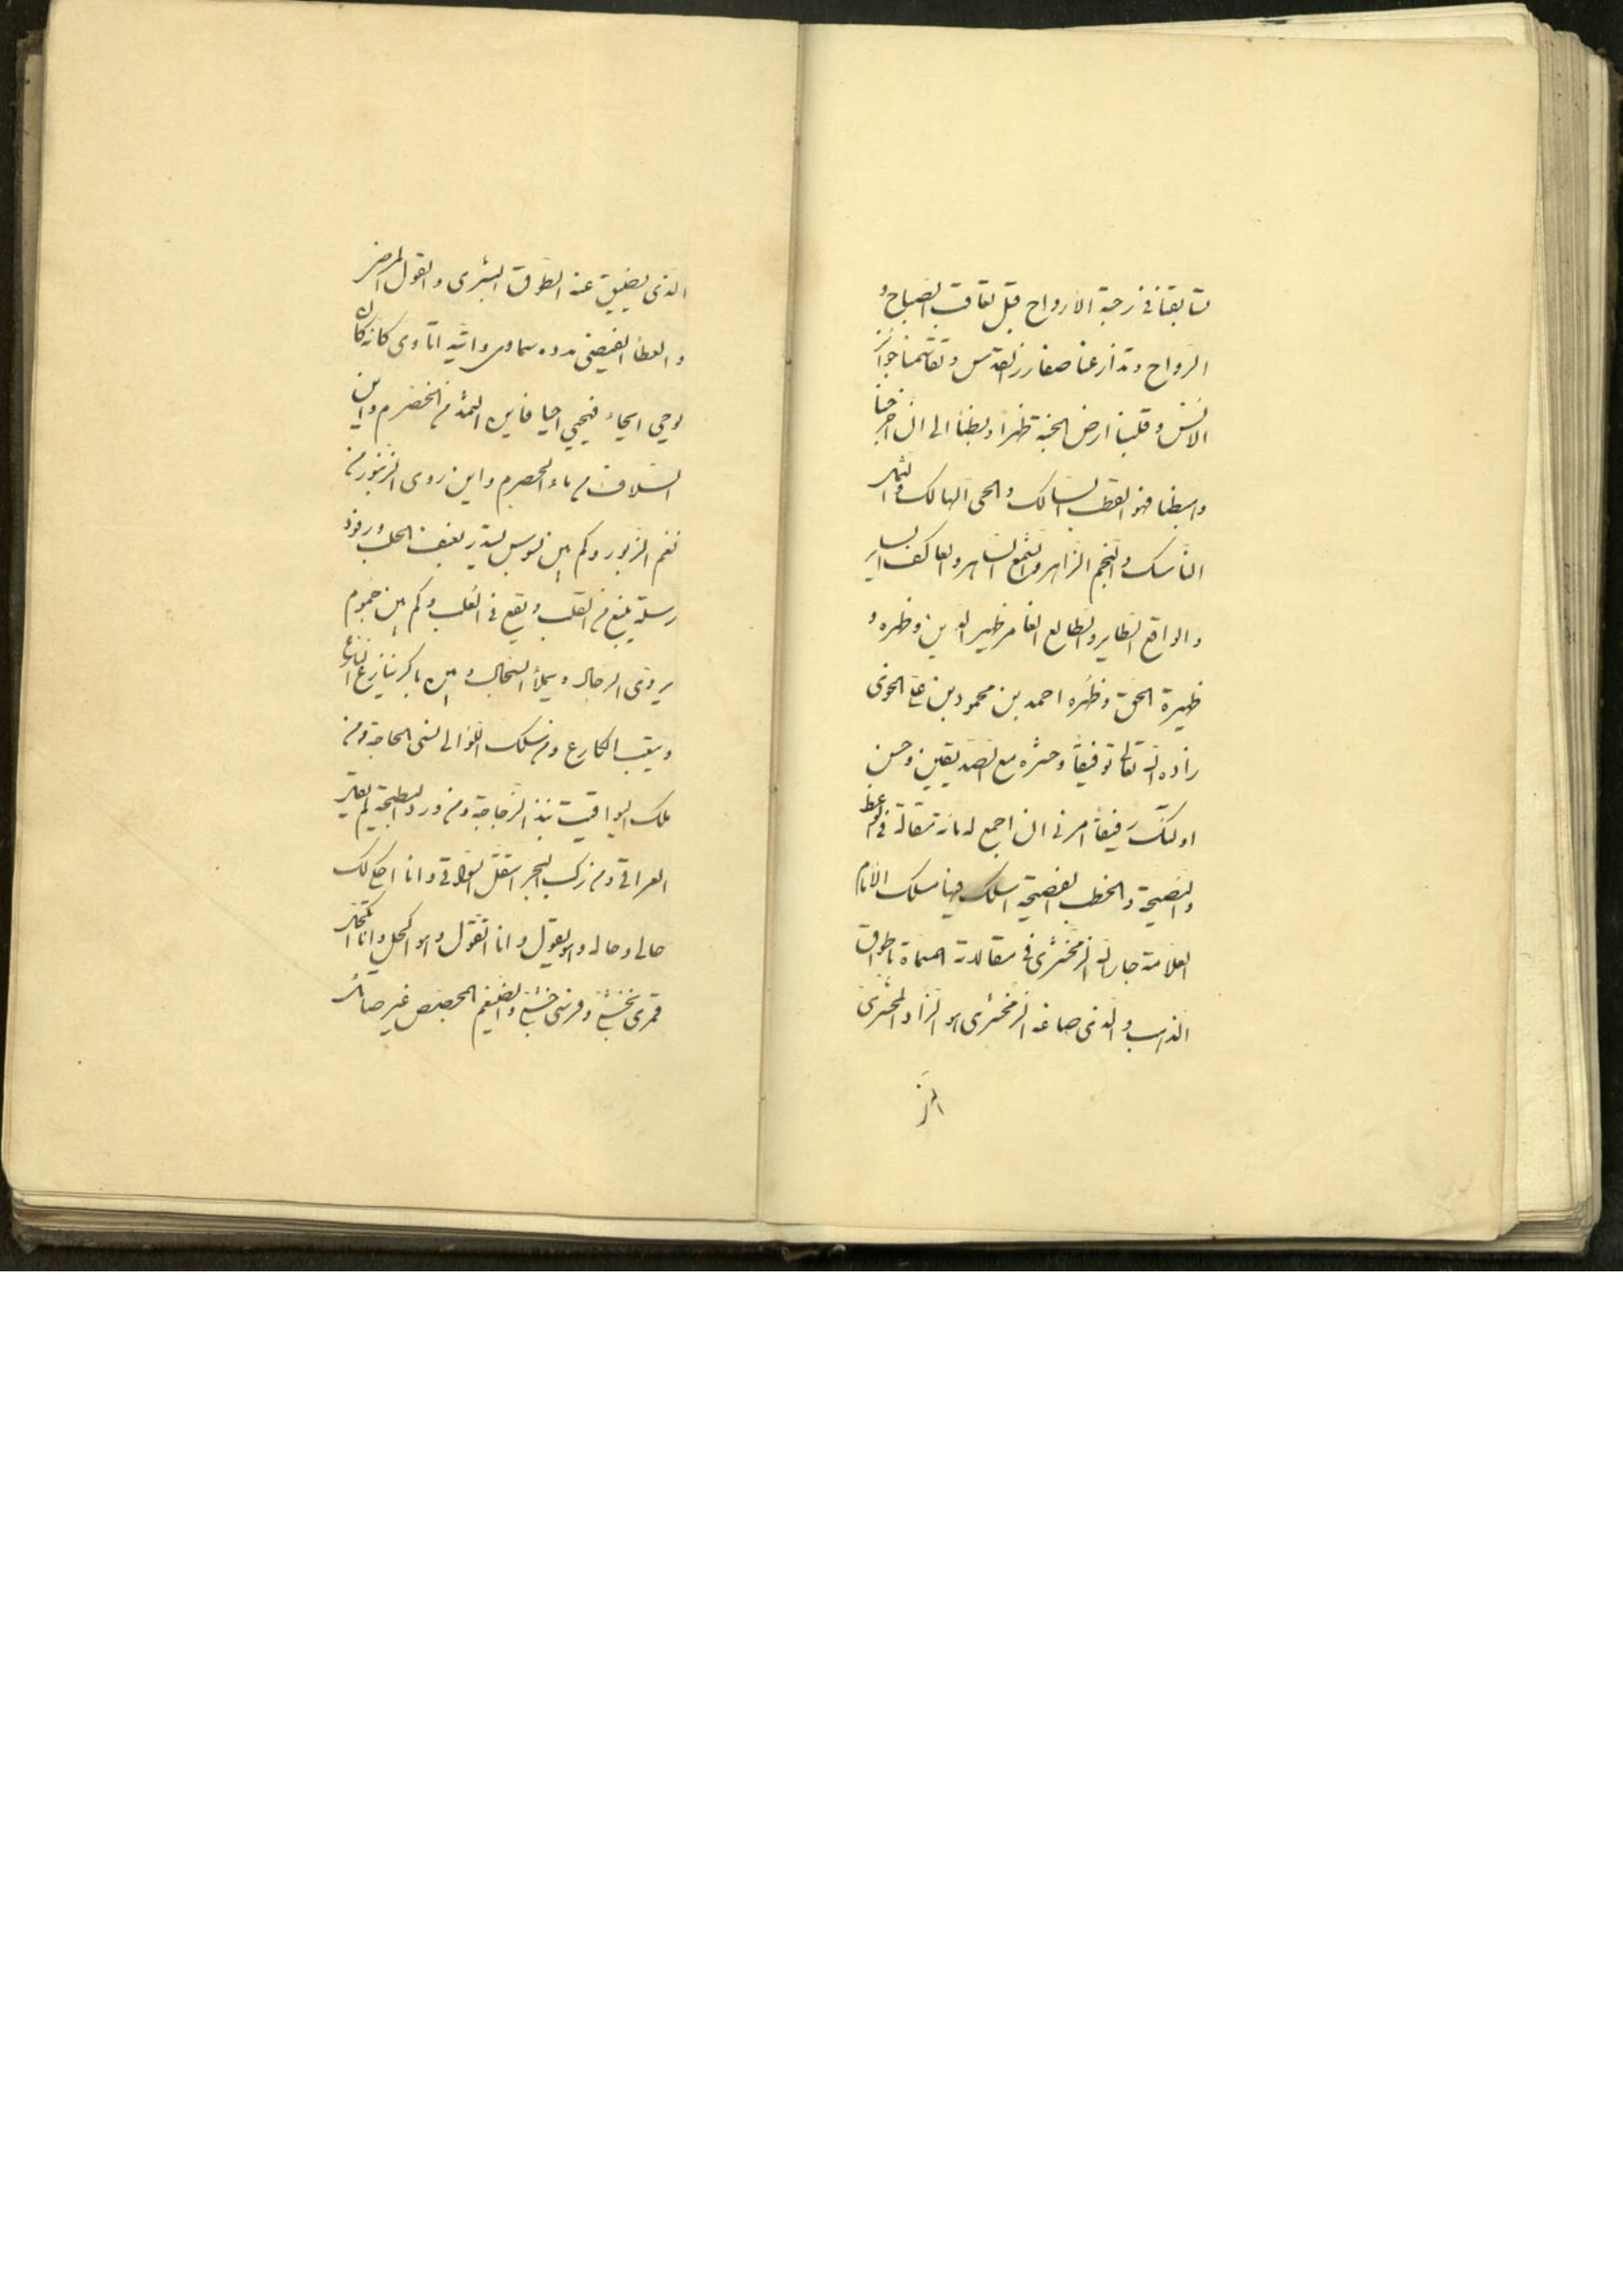 تسابقنا فی رحبة الارواح قبل تعاقب الصباح و
الرواح وتذارعنا صفارز القدس وتقاسمنا جوائز
الانس وقلبنا ارض المحبة ظهراً وبطناً الی ان اخرجنا
واسبطنا فهو القطب السالک والحی الهالک والثمل
الناسک والنجم الزاهر والشمع الساهر والعاکف السایر
والواقع الطایر والطالع الغابر ظهیر الدین وظهره و
ظهیرة الحق وظهره احمد بن محمود بن علی الخوی
زاده الله تعالی توفیقاً وحشره مع الصدیقین وحسن
اولئک رفیقاً امرنی ان اجمع له مائة مقالة فی الوعظ
والنصیحة والخطب الفصیحة اسلک فیها مسلک الامام
العلامة جار الله الزمخشری فی مقالاته المسماة باطواق
الذهب والذی صاغه الزمخشری هو الزاد المحشری
الذی یضیق عنه الطوق البشری والقول المرضی
والعطا الفیضی مدده سماوی واتیه اتاوی کانه کان
یوحی ایحاء فیحیی احیا فاین الثمد من الخضرم واین
السلاف من ماء الحصرم واین دوی الزنبور من
نغم الزبور وکم بین یستدر بعنف الحلب ورفود
رسلة ینبع من القلب ویقع فی القلب وکم بین جموم
یروی الرجال ویملأ السجال وبین باکر ینازع النازع
ویتعب الکارع ومن سلک اللوی الی منی الحاجة ومن
ملک الیواقیت نبذ الزجاجة ومن ورد البطیحة لم
العراقی ومن رکب البحر استقل السواقی وانا احکی لک
حالی وحاله وهو یقول وانا اتقول وهو اکحل وانا اتکحل
قمری بخشب وفرسی خشب والضیغم المجصص غیر صائل